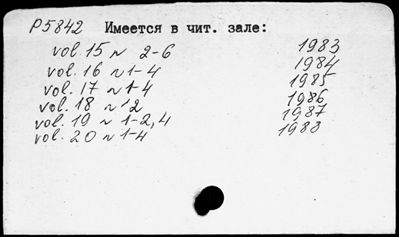 P5842 Имеется в чит. зале:
vol. 15 ~ 2-6 1983
vol. 16 ~ 1-4 1984
vol. 17 ~ 1-4 1985
vol. 18 ~ 1 2 1986
vol. 19 ~ 1-2, 4 1987
vol. 20 ~ 1-4 1988